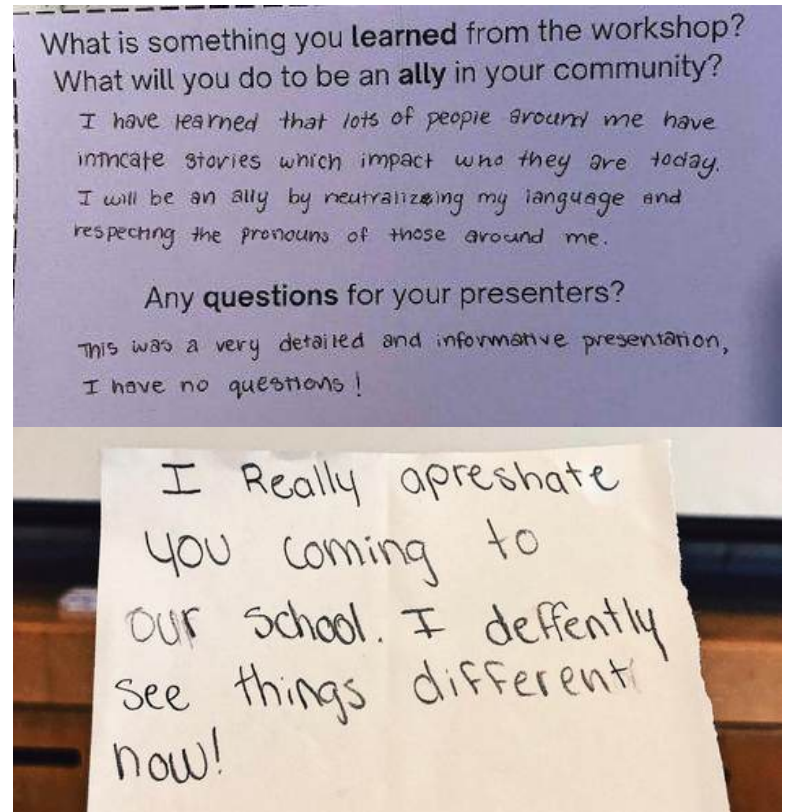 What is something you learned from the workshop?
What will you do to be an ally in your community?
I have learned that lots of people around me have
intricate stories which impact who they are today.
I will be an ally by neutralizing my language and
respecting the pronouns of those around me.
Any questions for your presenters?
This was a very detailed and informative presentation,
I have no questions!
I Really apreshate
you coming to
our school. I deffently
see things different
now!